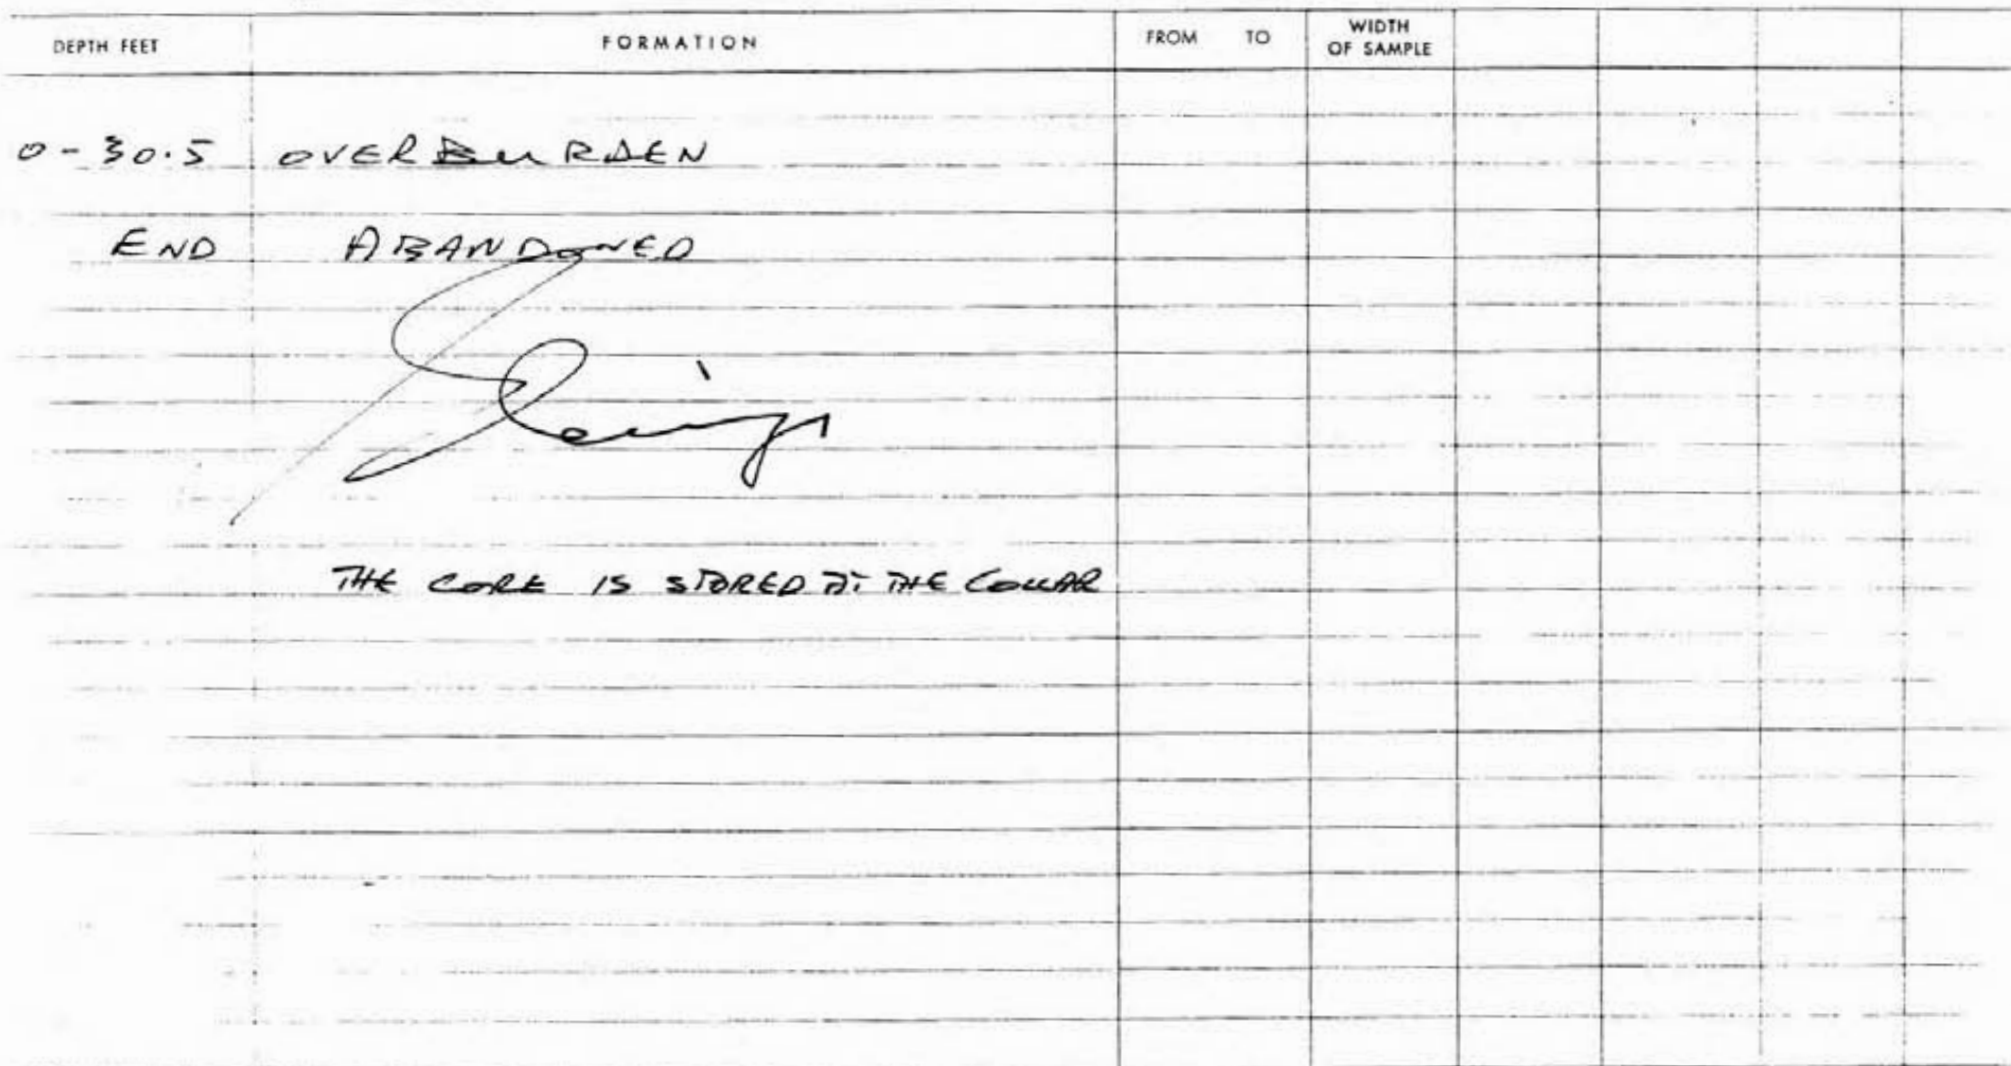 DEPTH FEET FORMATION FROM TO WIDTH OF SAMPLE
0-30.5 OVERBURDEN
END ABANDONED
THE CORE IS STORED AT THE COLLAR